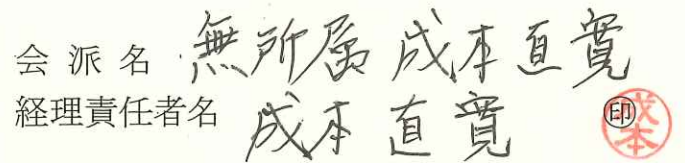 会派名 無所属 成本直寛
経理責任者名 成本 直寛 ㊞ 成本